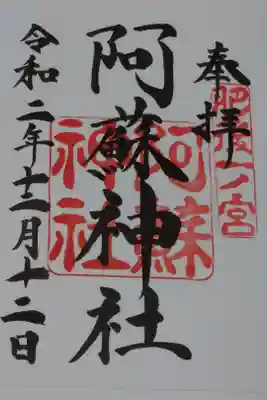 奉拝
肥後一ノ宮
阿蘇神社
阿蘇
神社
令和二年十二月十二日